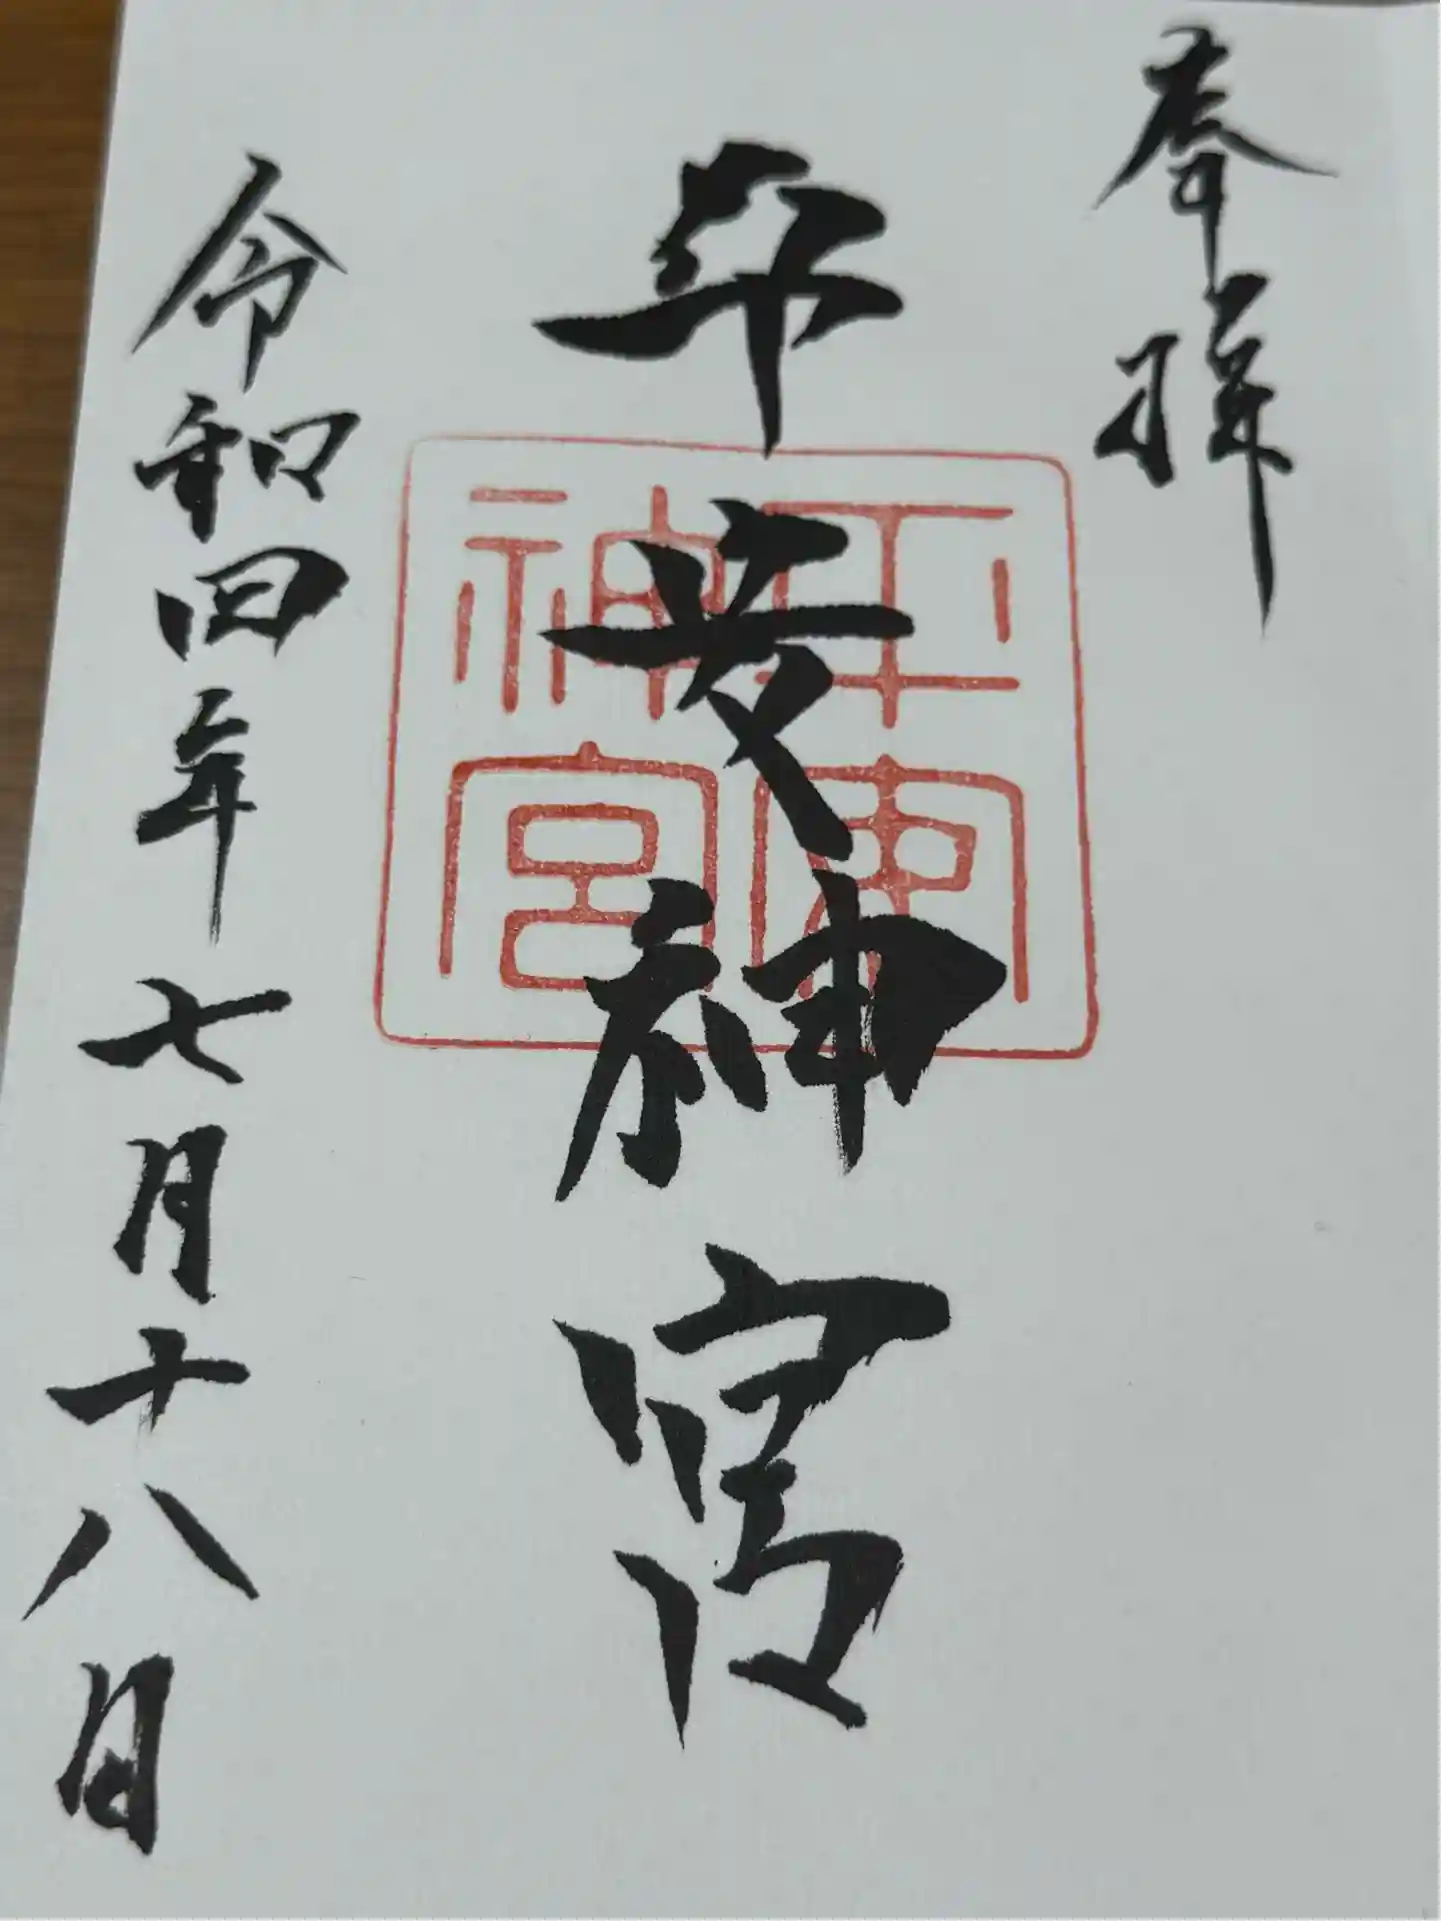 奉拝
平安神宮
平安
神宮
令和四年七月十八日